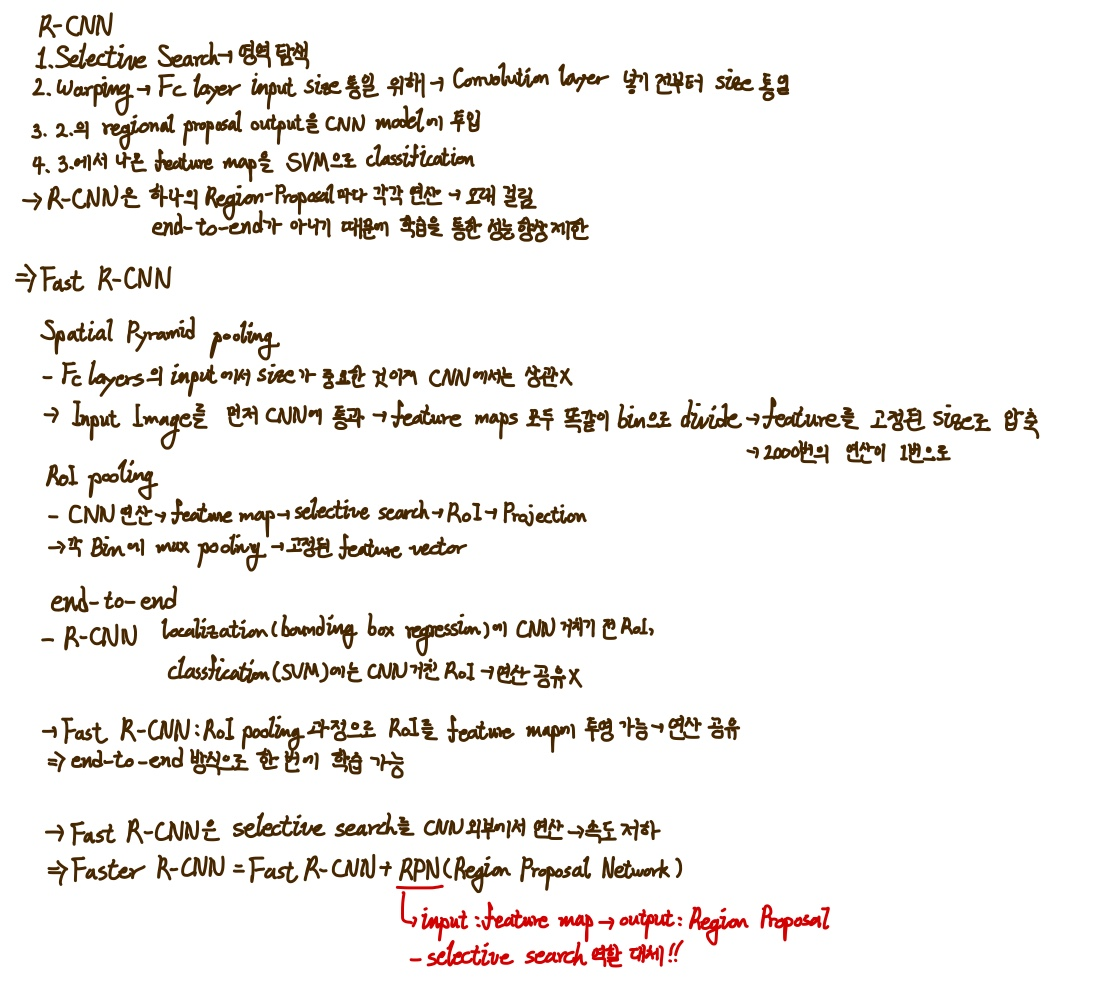 R-CNN
1. Selective Search → 영역 탐색
2. Warping → Fc layer input size 통일 위해 → Convolution layer 넣기 전부터 size 통일
3. 2.의 regional proposal output을 CNN model에 투입
4. 3.에서 나온 feature map을 SVM으로 classification
→ R-CNN은 하나의 Region-Proposal마다 각각 연산 → 오래 걸림
end-to-end가 아니기 때문에 학습을 통한 성능 향상 제한
⇒ Fast R-CNN
Spatial Pyramid pooling
- Fc layers의 input에서 size가 중요한 것이지 CNN에서는 상관X
→ Input Image를 먼저 CNN에 통과 → feature maps 모두 똑같이 bin으로 divide → feature를 고정된 size로 압축
→ 2000번의 연산이 1번으로
RoI pooling
- CNN 연산 → feature map → selective search → RoI → Projection
→ 각 Bin에 max pooling → 고정된 feature vector
end-to-end
- R-CNN localization(bounding box regression)에 CNN 거치기 전 RoI,
classfication(SVM)에는 CNN 거친 RoI → 연산 공유X
→ Fast R-CNN: RoI pooling 과정으로 RoI를 feature map에 투영 가능 → 연산 공유
⇒ end-to-end 방식으로 한 번에 학습 가능
→ Fast R-CNN은 selective search를 CNN 외부에서 연산 → 속도 저하
⇒ Faster R-CNN = Fast R-CNN + RPN(Region Proposal Network)
↳ input: feature map → output: Region Proposal
- selective search 역할 대체!!